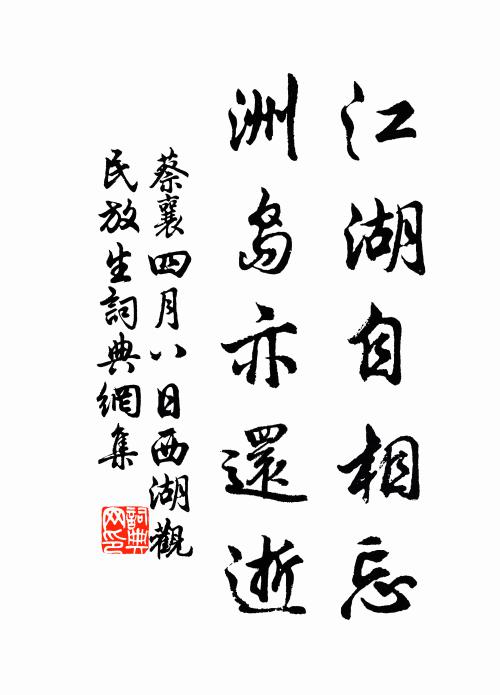 江湖自相忘
洲岛亦還逝
蔡襄四月八日西湖觀
民放生詞典網集
詞典网印